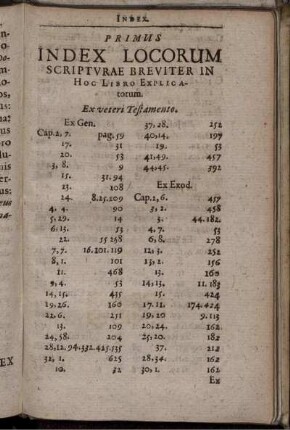 INDEX.
PRIMUS
INDEX LOCORUM
SCRIPTVRAE BREVITER IN
HOC LIBRO EXPLICA-
torum.
Ex veteri Testamento.
Ex Gen.
Cap. 2, 7. pag. 59
17. 31
20. 53
3, 8. 9
15. 31.94
13. 108
24. 8.25.109
4, 4. 90
5, 29. 14
6, 13. 53
22. 55 258
7, 7. 16.201.119
8, 1. 101
11. 468
9, 4. 53
14, 15. 435
19, 26. 160
22, 6. 251
13. 109
24, 58. 204
28, 12. 94.332.425.535
32, 1. 625
10. 32
37, 28. 252
40, 14. 197
19. 53
41, 49. 457
44, 45. 392
Ex Exod.
Cap. 1, 6. 457
3, 2. 458
5. 44.182.
4, 7. 53
6, 8. 278
12, 3. 252
13, 2. 156
12. 160
14, 13. 11.183
15. 424
17, 11. 174.424
19, 10 9.113
20, 24. 162
25, 20. 182
37. 212
28, 34. 162
30, 1. 162
Ex
EX